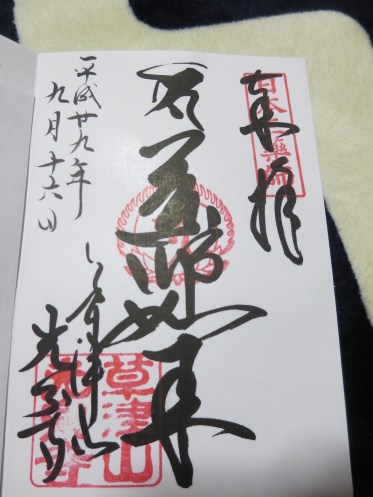 奉拝
日本三藥師
薬師如来
草津山
光泉寺
草津山
光泉寺
平成廿九年
九月十六日